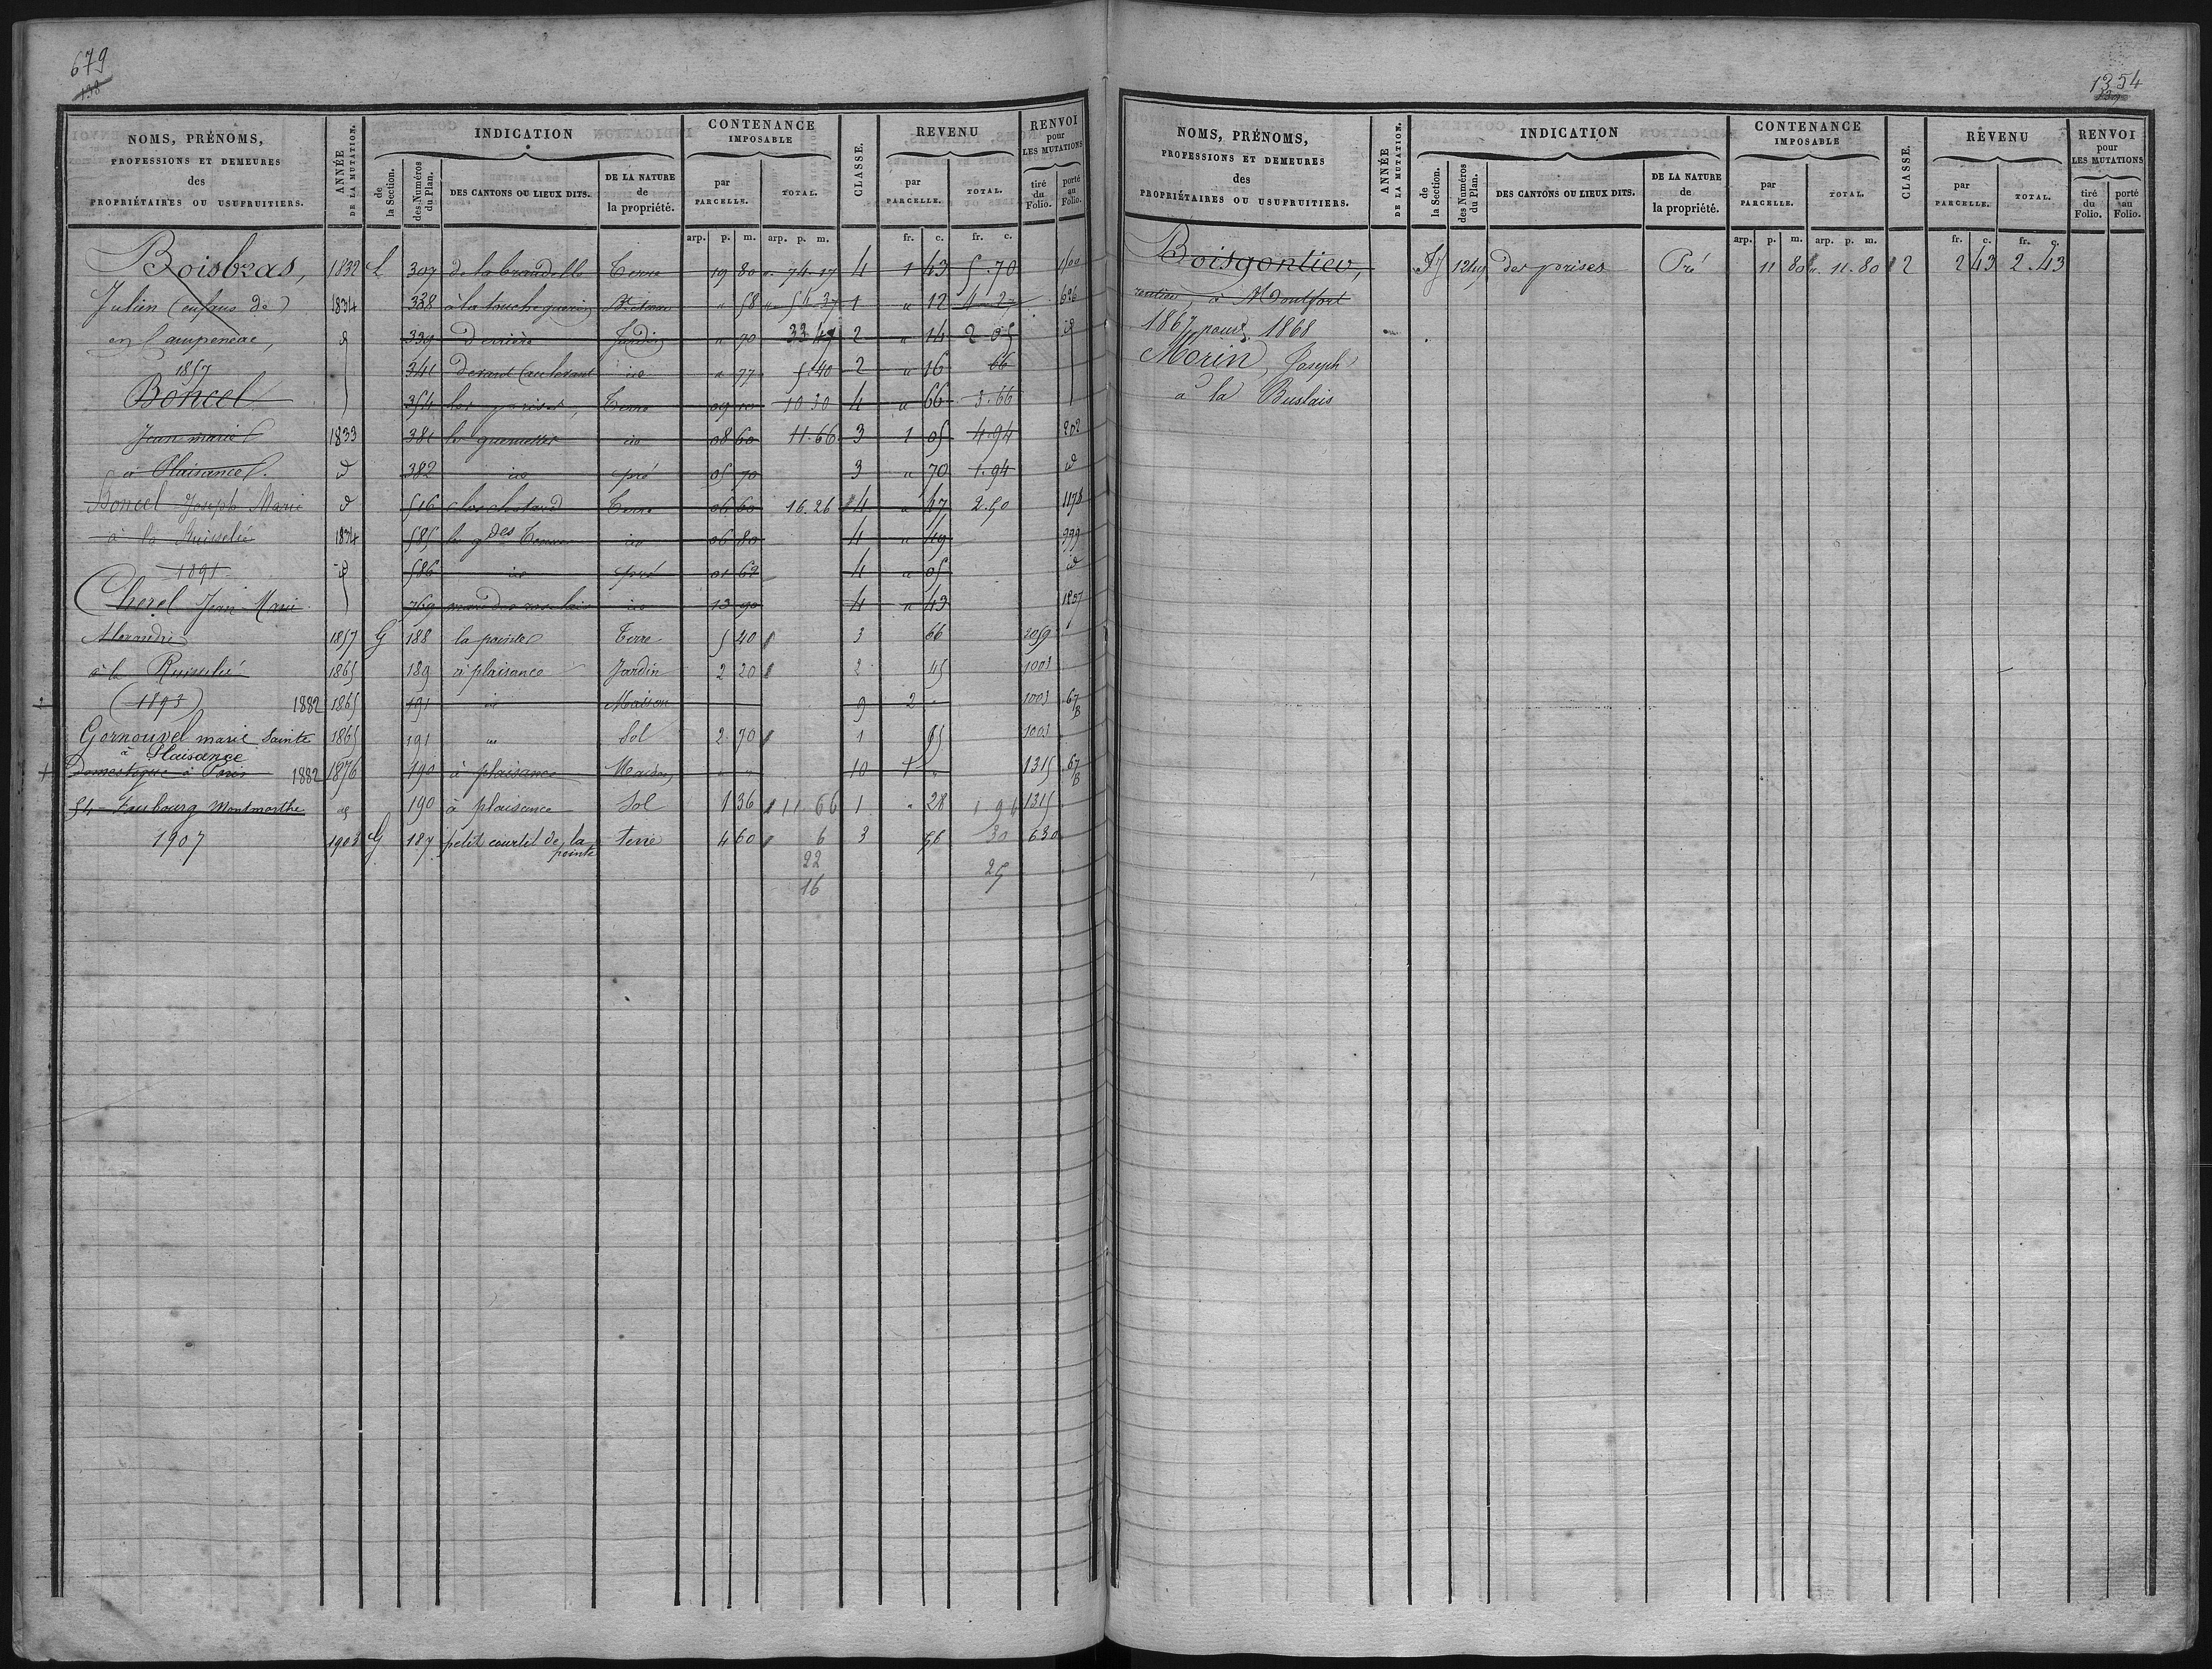 679
138
NOMS, PRÉNOMS, PROFESSIONS ET DEMEURES des PROPRIÉTAIRES OU USUFRUITIERS.
ANNÉE DE LA MUTATION.
INDICATION
de la Section.
des Numéros du Plan.
DES CANTONS OU LIEUX DITS.
DE LA NATURE de la propriété.
CONTENANCE IMPOSABLE
par PARCELLE.
TOTAL.
CLASSE.
REVENU
par PARCELLE.
TOTAL.
RENVOI pour LES MUTATIONS
tiré du Folio.
porté au Folio.
arp. p. m. arp. p. m. fr. c. fr. c.
Boisbras, 1832 L 307 de la brandelle Terre 19 80 " 74.17 4 1 43 5.70
Julien (enfans de) 1834 338 à la touche guerin " 58 " 54 37 1 " 12 4 27 626
en Campeneac, d 339 derrière Jardin " 90 33 47 2 " 14 2 05 d
1857 341 devant " 77 5.40 2 " 16 66
Boncel 354 les prises, Terre 09 10 10 30 4 " 66 3.66
Jean marie 1833 381 08 60 11.66 3 1 05 4.94 202
à Plaisance. d 382 pré 05 70 3 " 70 1.94 d
Boncel Joseph Marie d 516 Terre 06 60 16.26 4 " 47 2.50 1178
à la Ruisselié 1834 585 les gdes 06 80 4 " 49 999
1891 d 586 pré 01 62 4 " 05 d
Cherel Jean Marie 769 13 90 4 " 43
Alexandre 1857 G 188 la pointe Terre 5 40 3 66 2059
à la Ruisselié 1865 189 à plaisance Jardin 2 20 2 45 1001
(1893) 1882 1865 191 Maison 9 2 " 1001 67 B
Gornouvel marie Sainte 1865 191 Sol 2 70 1 65 1001
à Plaisance
Domestique à Paris 1882 1876 190 à plaisance Maison " " 10 1 " 1315 67 B
54 Faubourg Montmarthe 190 à plaisance Sol 1 36 11 66 1 " 28 1 96 1315
1907 1903 G 187 petit courtil de la pointe terre 4 60 6 3 56 30 630
22 25
16
1354
139
NOMS, PRÉNOMS, PROFESSIONS ET DEMEURES des PROPRIÉTAIRES OU USUFRUITIERS.
ANNÉE DE LA MUTATION.
INDICATION
de la Section.
des Numéros du Plan.
DES CANTONS OU LIEUX DITS.
DE LA NATURE de la propriété.
CONTENANCE IMPOSABLE
par PARCELLE.
TOTAL.
CLASSE.
REVENU
par PARCELLE.
TOTAL.
RENVOI pour LES MUTATIONS
tiré du Folio.
porté au Folio.
arp. p. m. arp. p. m. fr. c. fr. c.
Boisgontier, 1249 des prises Pré 11 80 " 11.80 2 2 43 2.43
rentier, à Montfort
1867 pour 1868
Morin, Joseph
à la Buslais